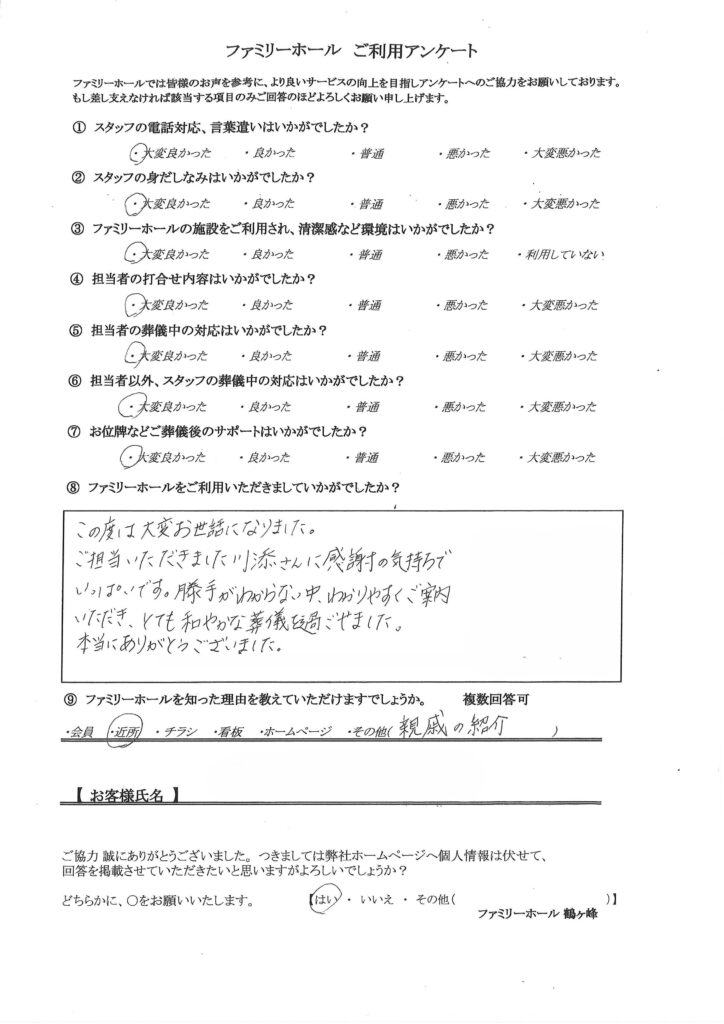 ファミリーホール　ご利用アンケート
ファミリーホールでは皆様のお声を参考に、より良いサービスの向上を目指しアンケートへのご協力をお願いしております。
もし差し支えなければ該当する項目のみご回答のほどよろしくお願い申し上げます。
① スタッフの電話対応、言葉遣いはいかがでしたか？
・大変良かった ・良かった ・普通 ・悪かった ・大変悪かった
② スタッフの身だしなみはいかがでしたか？
・大変良かった ・良かった ・普通 ・悪かった ・大変悪かった
③ ファミリーホールの施設をご利用され、清潔感など環境はいかがでしたか？
・大変良かった ・良かった ・普通 ・悪かった ・利用していない
④ 担当者の打合せ内容はいかがでしたか？
・大変良かった ・良かった ・普通 ・悪かった ・大変悪かった
⑤ 担当者の葬儀中の対応はいかがでしたか？
・大変良かった ・良かった ・普通 ・悪かった ・大変悪かった
⑥ 担当者以外、スタッフの葬儀中の対応はいかがでしたか？
・大変良かった ・良かった ・普通 ・悪かった ・大変悪かった
⑦ お位牌などご葬儀後のサポートはいかがでしたか？
・大変良かった ・良かった ・普通 ・悪かった ・大変悪かった
⑧ ファミリーホールをご利用いただきましていかがでしたか？
この度は大変お世話になりました。
ご担当いただきました川添さんに感謝の気持ちで
いっぱいです。勝手がわからない中、わかりやすくご案内
いただき、とても和やかな葬儀を過ごせました。
本当にありがとうございました。
⑨ ファミリーホールを知った理由を教えていただけますでしょうか。 複数回答可
・会員 ・近所 ・チラシ ・看板 ・ホームページ ・その他( 親戚の紹介 )
【 お客様氏名 】
ご協力 誠にありがとうございました。つきましては弊社ホームページへ個人情報は伏せて、
回答を掲載させていただきたいと思いますがよろしいでしょうか？
どちらかに、〇をお願いいたします。 【はい ・ いいえ ・ その他( )】
ファミリーホール 鶴ヶ峰